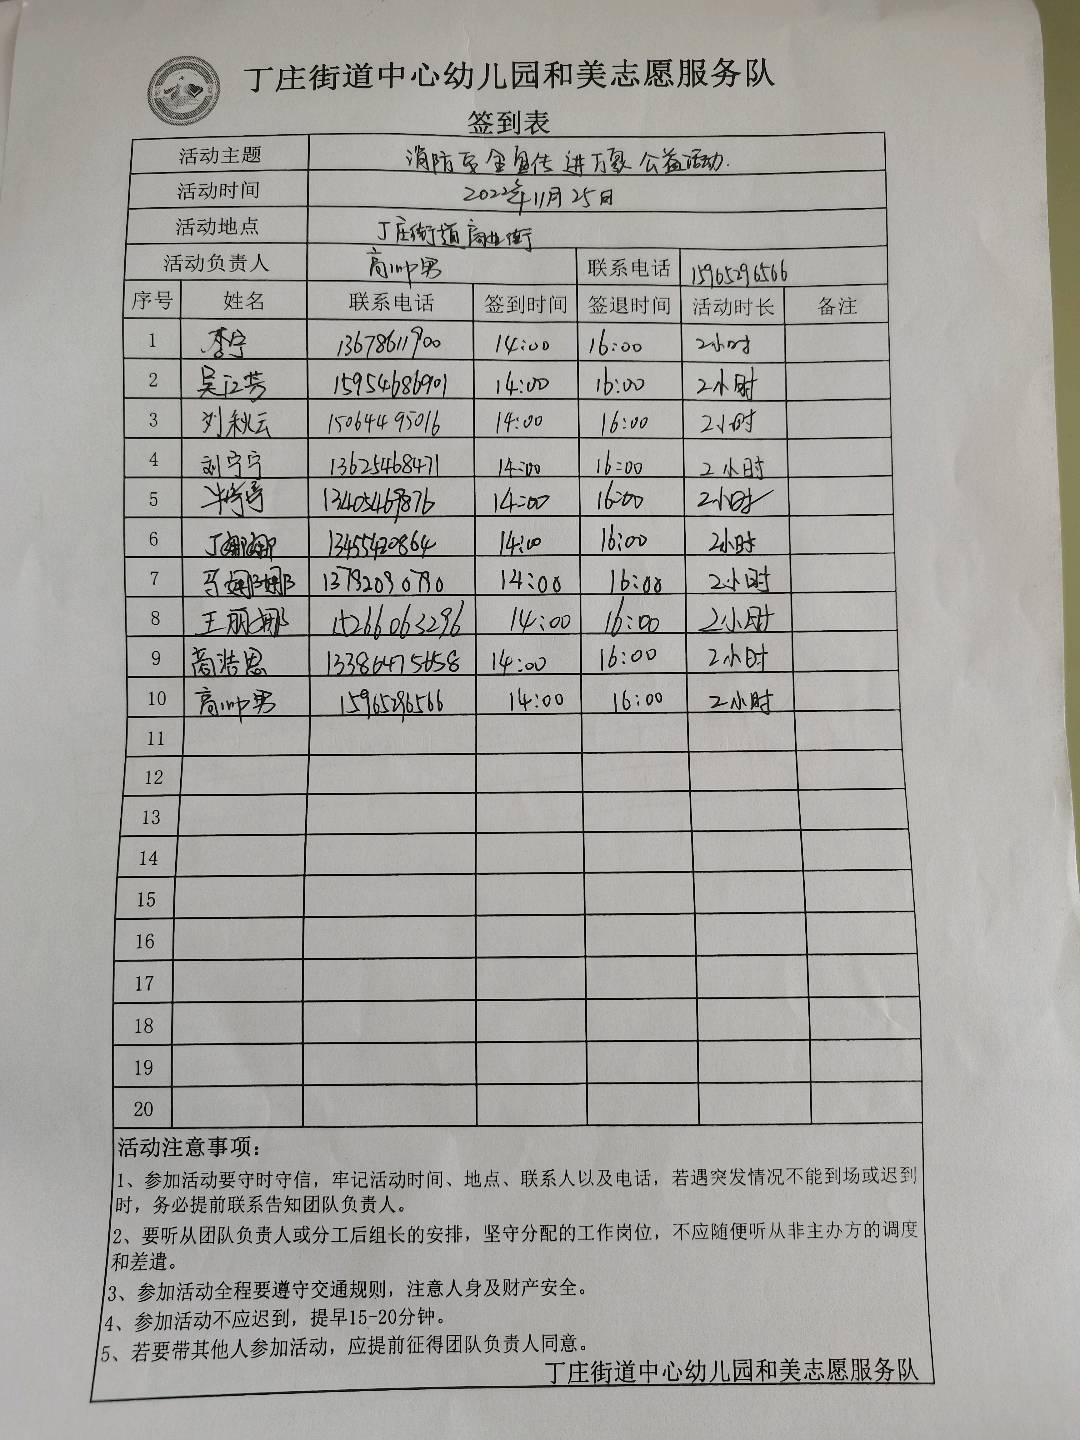 丁庄街道中心幼儿园和美志愿服务队
签到表
活动主题 消防安全宣传进万家公益活动.
活动时间 2022年11月25日
活动地点 丁庄街道商业街
活动负责人 高帅男 联系电话 15965296566
序号 姓名 联系电话 签到时间 签退时间 活动时长 备注
1 李宁 13678611900 14:00 16:00 2小时
2 吴江芳 15954686901 14:00 16:00 2小时
3 刘秋云 15064495016 14:00 16:00 2小时
4 刘宁宁 13625468471 14:00 16:00 2小时
5 13405469876 14:00 16:00 2小时
6 丁娜娜 13455420864 14:00 16:00 2小时
7 马娜娜 13792090790 14:00 16:00 2小时
8 王丽娜 15266063296 14:00 16:00 2小时
9 商浩恩 13386475658 14:00 16:00 2小时
10 高帅男 15965296566 14:00 16:00 2小时
11
12
13
14
15
16
17
18
19
20
活动注意事项：
1、参加活动要守时守信，牢记活动时间、地点、联系人以及电话，若遇突发情况不能到场或迟到
时，务必提前联系告知团队负责人。
2、要听从团队负责人或分工后组长的安排，坚守分配的工作岗位，不应随便听从非主办方的调度
和差遣。
3、参加活动全程要遵守交通规则，注意人身及财产安全。
4、参加活动不应迟到，提早15-20分钟。
5、若要带其他人参加活动，应提前征得团队负责人同意。
丁庄街道中心幼儿园和美志愿服务队